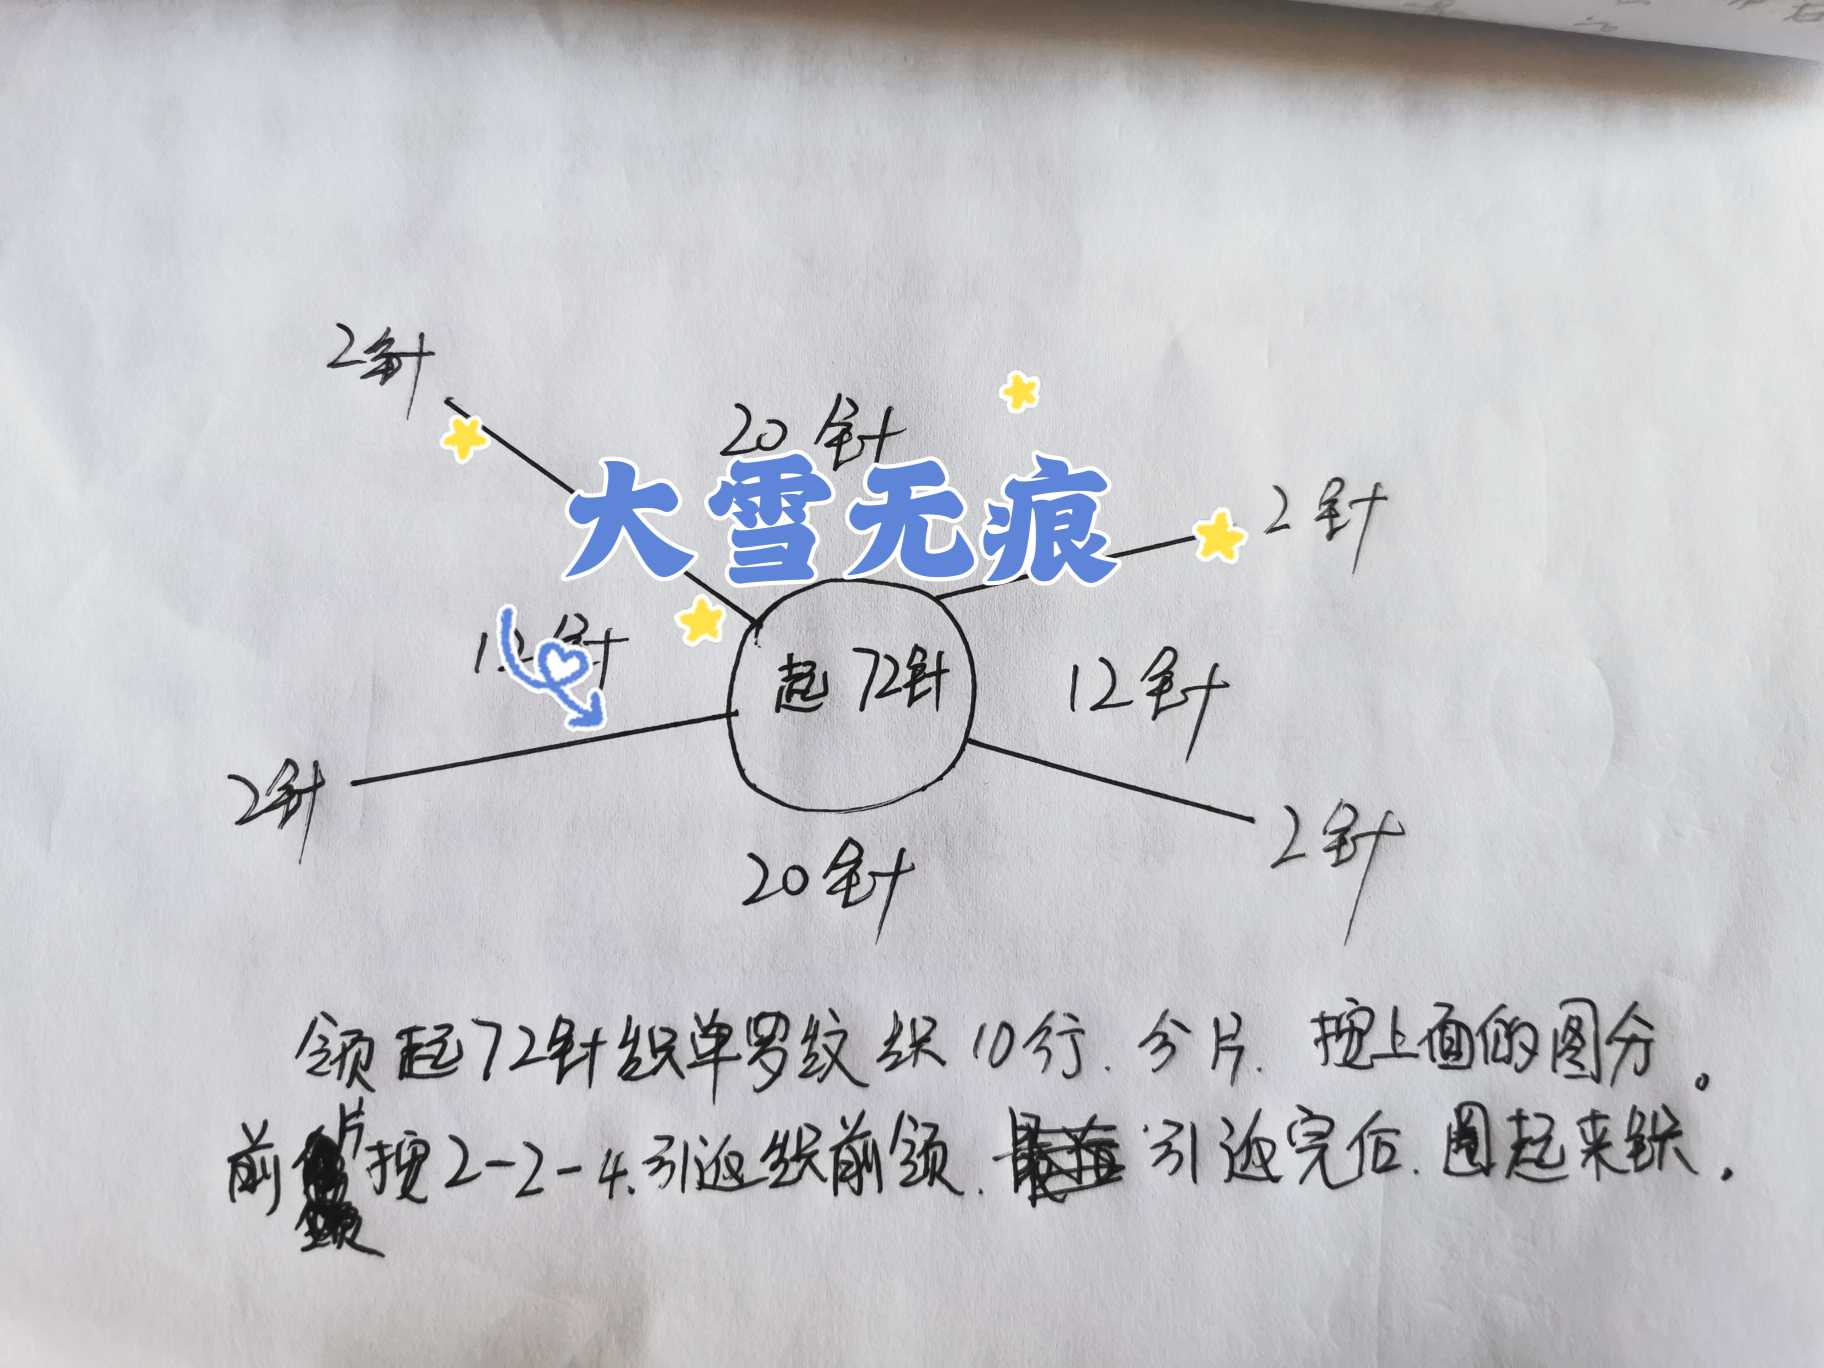 2针
20针
大雪无痕
2针
12针
起72针
12针
2针
20针
2针
领起72针织单罗纹织10行.分片.按上面的图分。
前片按2-2-4.引返织前领.引返完后.圈起来织.